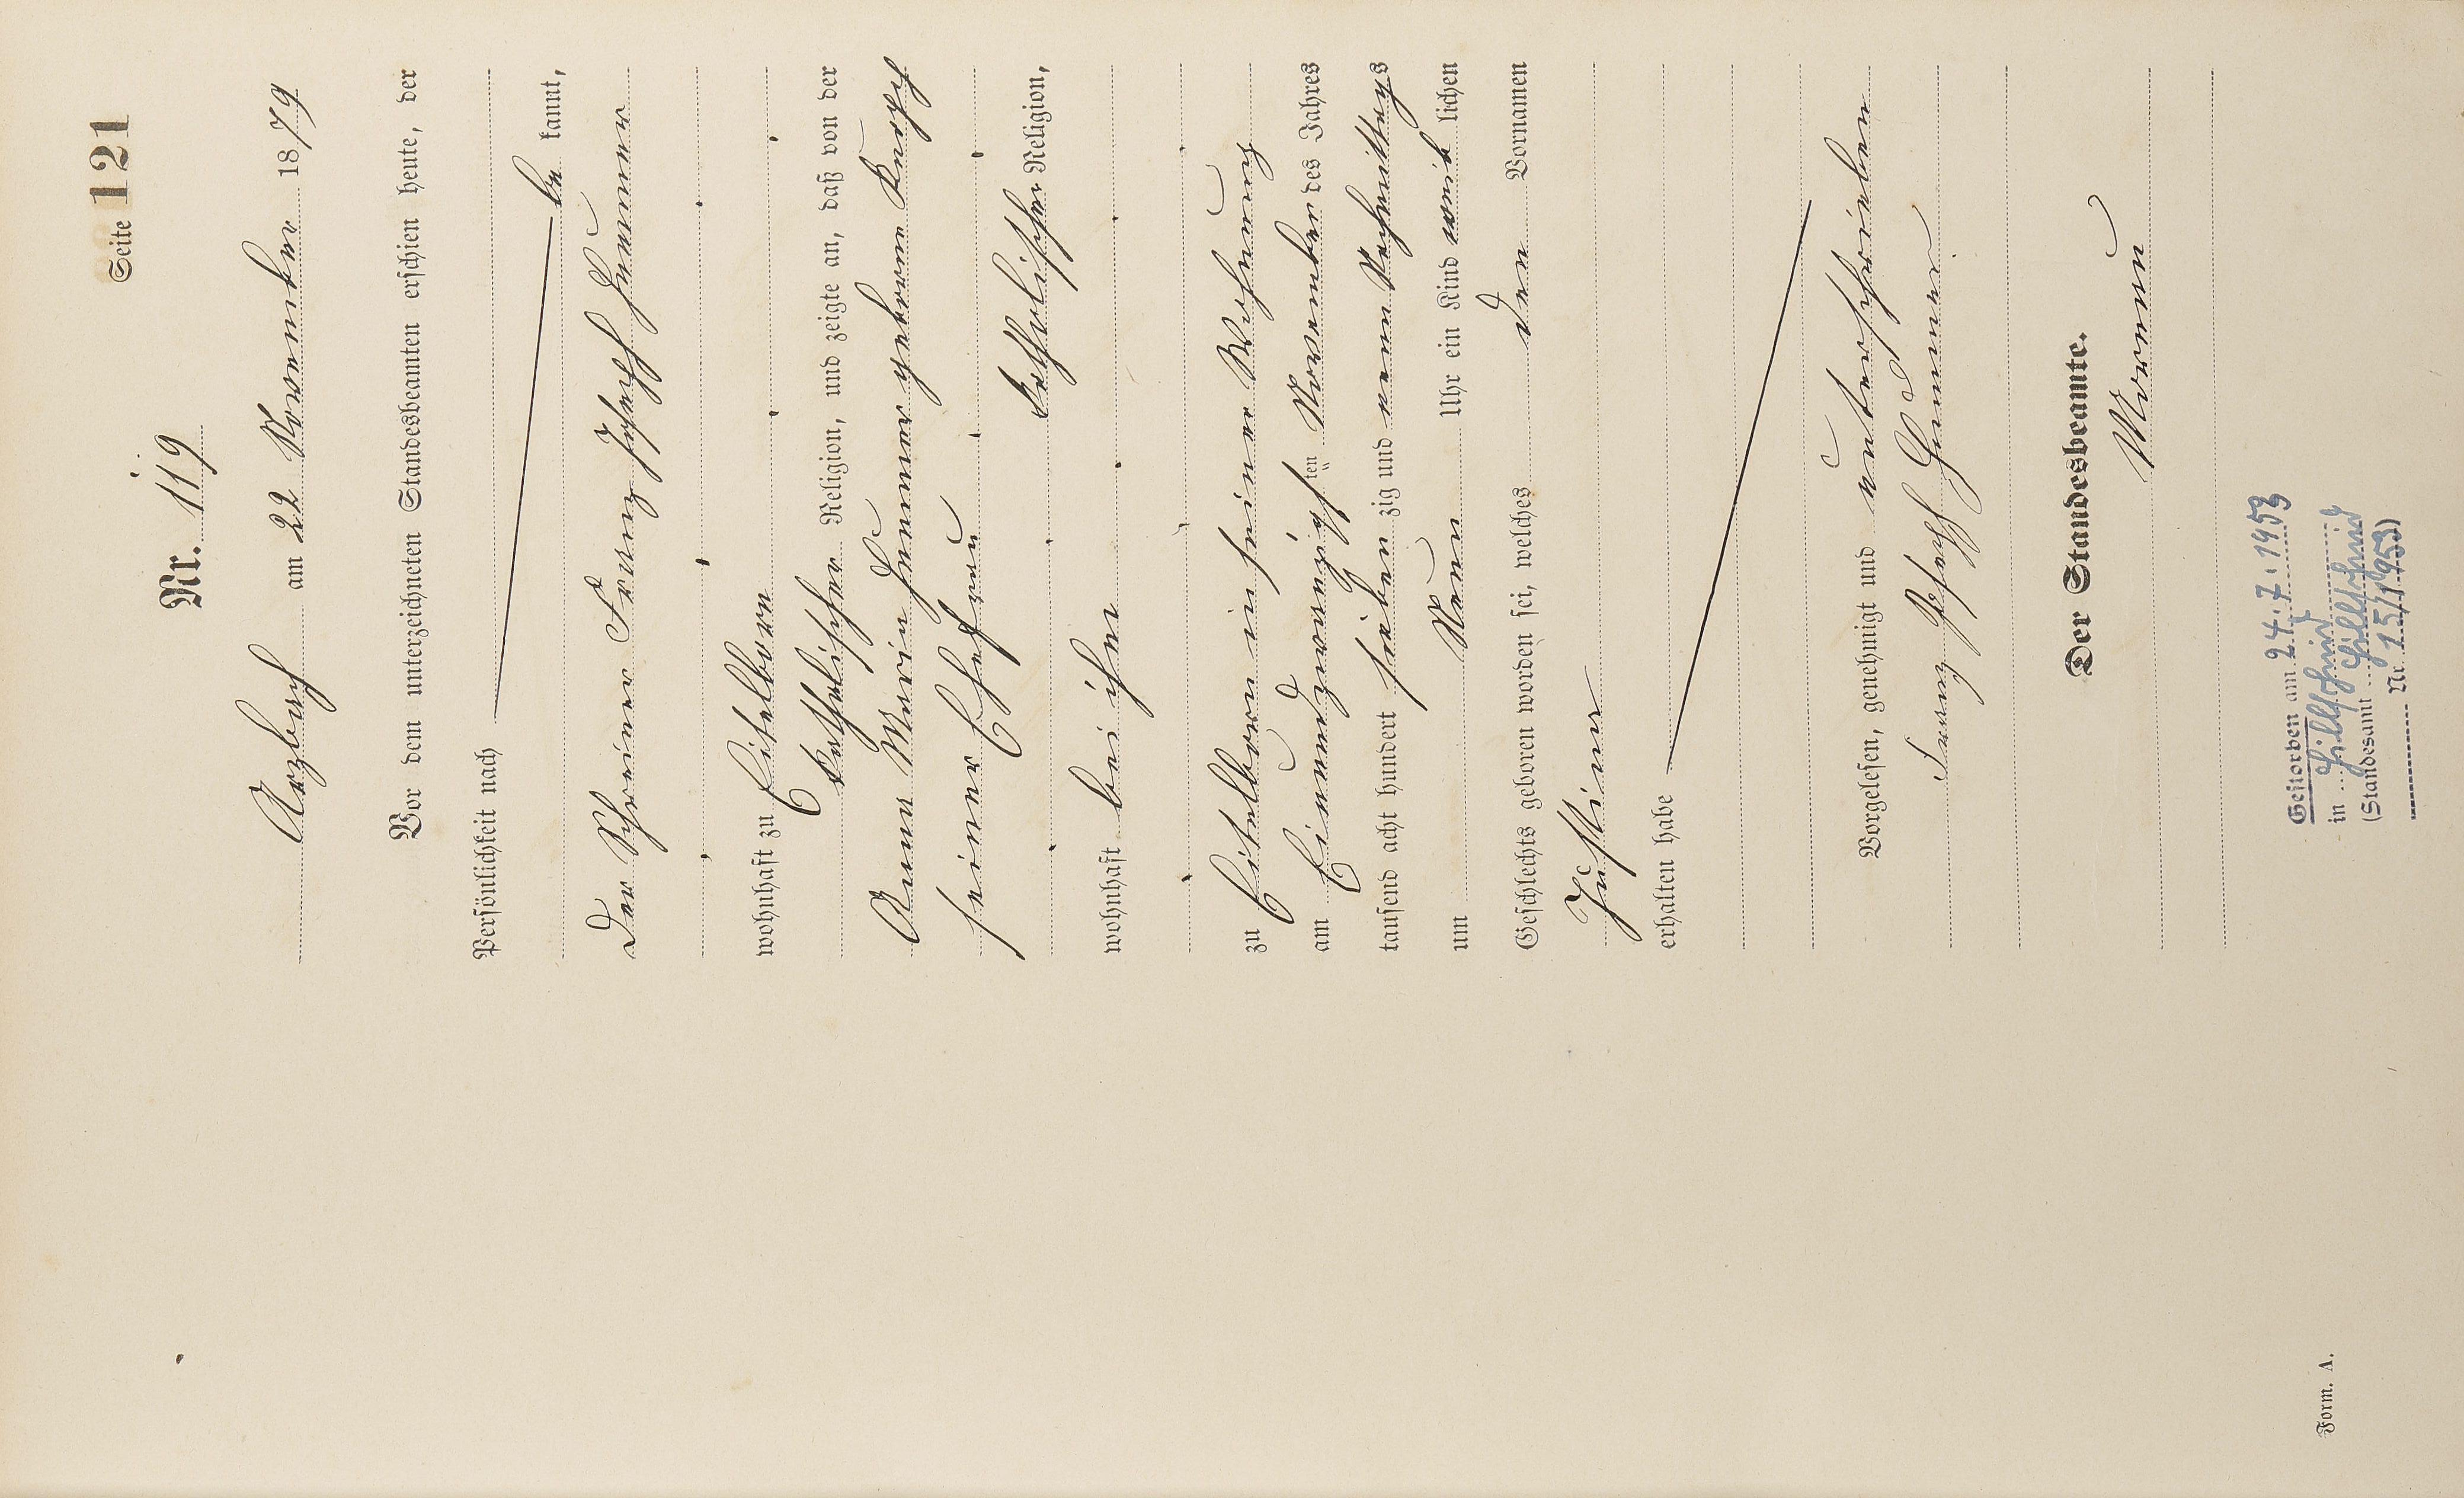 Seite 121
Nr. 119
Arzbach am 22 November 1879
Vor dem unterzeichneten Standesbeamten erschien heute, der
Persönlichkeit nach
be kannt,
der Schreiner Franz Joseph Hummer
wohnhaft zu Eitelborn
katholischer Religion, und zeigte an, daß von der
Anna Maria Hummer geborene Knopp
seiner Ehefrau
katholischer Religion,
wohnhaft bei ihm
zu Eitelborn in seiner Wohnung
am Einundzwanzigsten November des Jahres
tausend acht hundert siebenzig und neun Nachmittags
um Neun Uhr ein Kind weiblichen
Geschlechts geboren worden sei, welches den Vornamen
Justina
erhalten habe
Vorgelesen, genehmigt und unterschrieben
Franz Joseph Hummer
Der Standesbeamte.
Gestorben am 24.7.1953
in Hillscheid
(Standesamt Hillscheid
Nr. 15/1953)
Form. A.